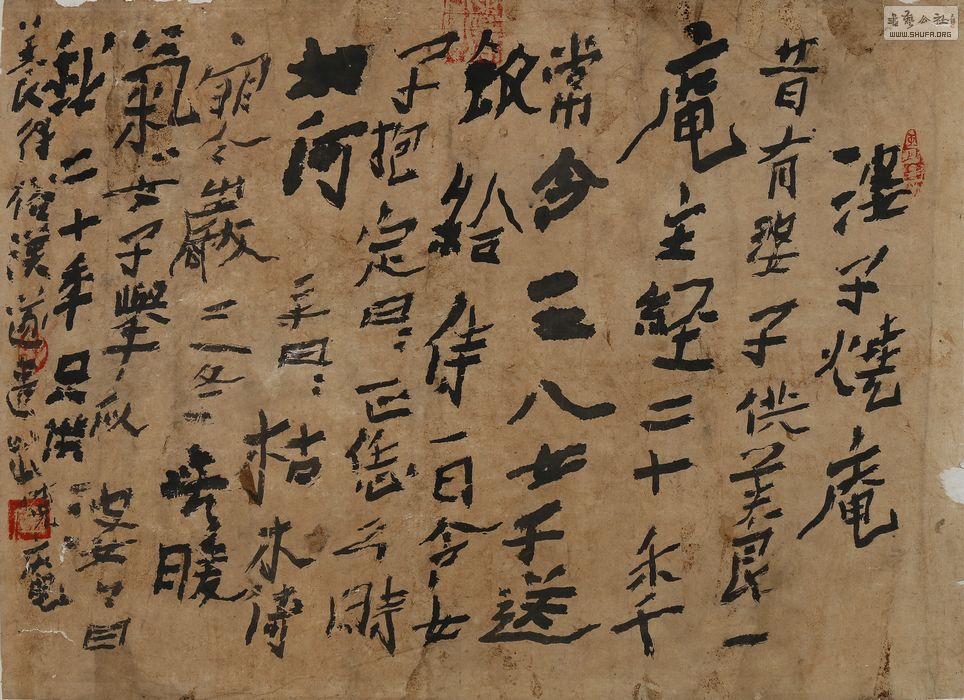 婆子燒庵
昔有婆子供養一
庵主經二十秊
常令二八女子送
飯給侍一日令女
子抱定曰正恁么時
如何主曰枯木倚
寒巖三冬無暖
氣女子舉似婆婆曰
我二十季只供
養得俗漢遂遣出燒庵
書藝公社
WWW.SHUFA.ORG